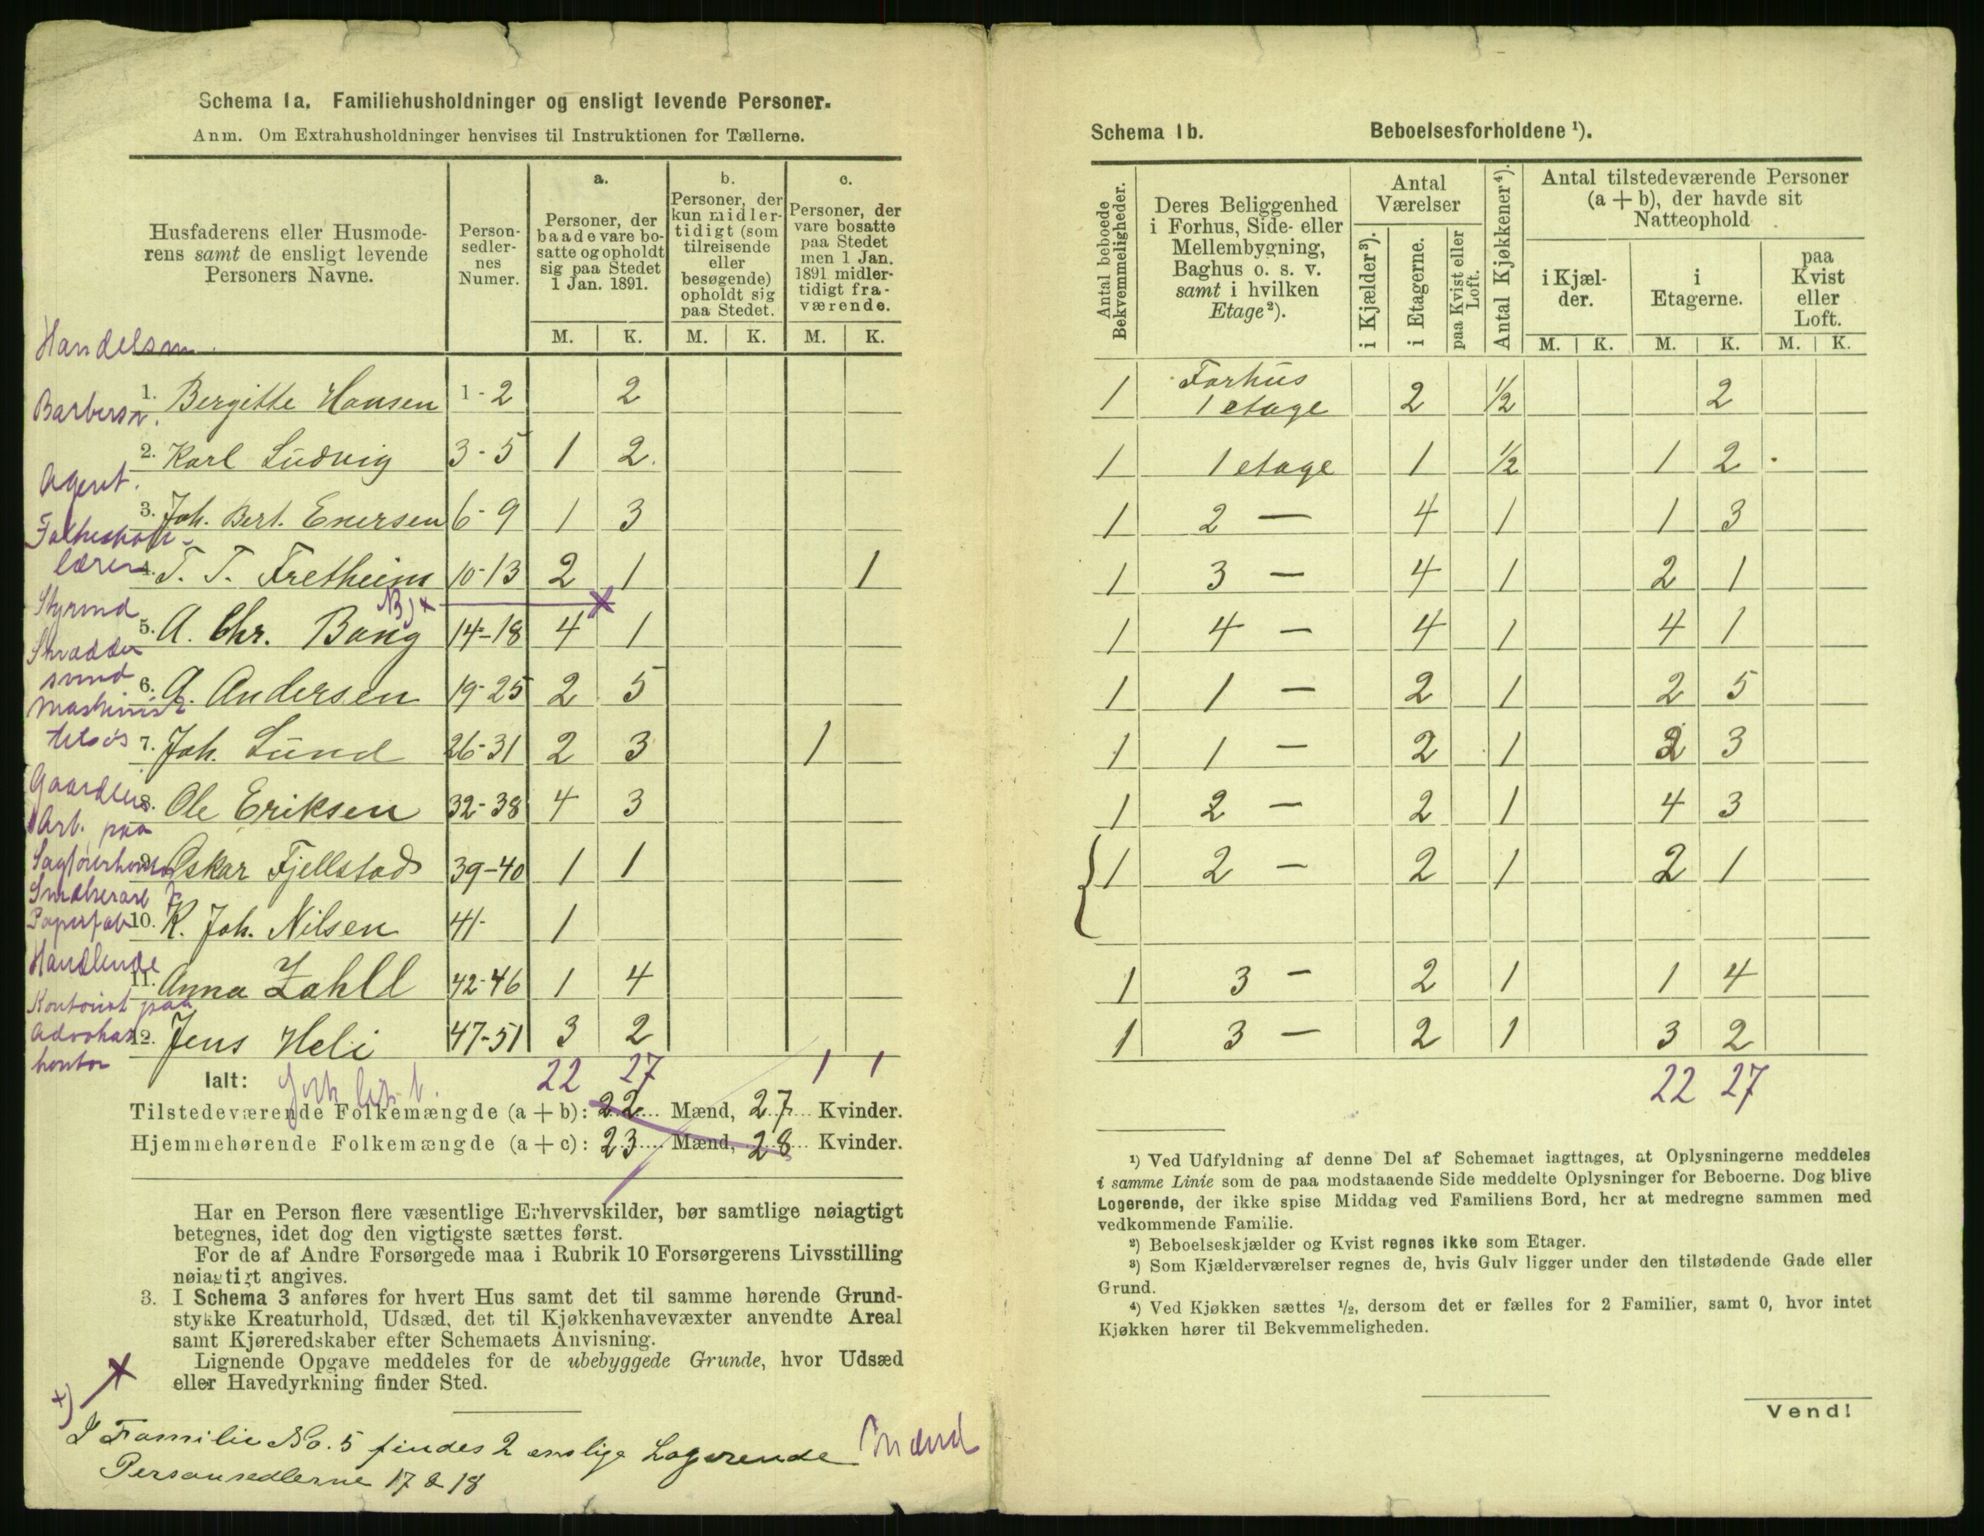 Schema 1a. Familiehusholdninger og ensligt levende Personer.
Anm. Om Extrahusholdninger henvises til Instruktionen for Tællerne.
Husfaderens eller Husmode-
rens samt de ensligt levende
Personers Navne.
Person-
sedler-
nes
Numer.
a.
Personer, der
baade vare bo-
satte og opholdt
sig paa Stedet
1 Jan. 1891.
b.
Personer, der
kun midler-
tidigt (som
tilreisende
eller
besøgende)
opholdt sig
paa Stedet.
c.
Personer, der
vare bosatte
paa Stedet
men 1 Jan.
1891 midler-
tidigt fra-
værende.
M. K. M. K. M. K.
Handelsm.
1. Bergitte Hansen 1-2 2
Barbersv.
2. Karl Ludvig 3-5 1 2.
Agent.
3. Joh. Bert. Enersen 6-9 1 3
Folkeskole-
lærer
4. T. T. Fretheim 10-13 2 1 1
Styrmd
5. A. Chr. Bang NB)+ 14-18 4 1
Skrædder
svend
6. A. Andersen 19-25 2 5
Maskinist
tilsøs
7. Joh. Lund 26-31 2 3 1
Gaardeier
8. Ole Eriksen 32-38 4 3
Arb. paa
Sagførerkontor
9. Oskar Fjellstad 39-40 1 1
10. K. Joh. Nilsen 41- 1
Papirfab
Handlende
11. Anna Zahll 42-46 1 4
Kontorist paa
Advokat
kontor
12. Jens Heli 47-51 3 2
Ialt: 22 27 1 1
Tilstedeværende Folkemængde (a + b): 22 Mænd, 27 Kvinder.
Hjemmehørende Folkemængde (a + c): 23 Mænd, 28 Kvinder.
Har en Person flere væsentlige Erhvervskilder, bør samtlige nøiagtigt
betegnes, idet dog den vigtigste sættes først.
For de af Andre Forsørgede maa i Rubrik 10 Forsørgerens Livsstilling
nøiagtigt angives.
3. I Schema 3 anføres for hvert Hus samt det til samme hørende Grund-
stykke Kreaturhold, Udsæd, det til Kjøkkenhavevæxter anvendte Areal
samt Kjøreredskaber efter Schemaets Anvisning.
Lignende Opgave meddeles for de ubebyggede Grunde, hvor Udsæd
eller Havedyrkning finder Sted.
+)
I Familie No. 5 findes 2 enslige Logerende Mænd
Personsedlerne 17 & 18
Schema 1b. Beboelsesforholdene ¹).
Antal beboede
Bekvemmeligheder.
Deres Beliggenhed
i Forhus, Side- eller
Mellembygning,
Baghus o. s. v.
samt i hvilken
Etage ²).
Antal
Værelser
i Kjælder ³).
i Etagerne.
paa Kvist eller
Loft.
Antal Kjøkkener ⁴).
Antal tilstedeværende Personer
(a + b), der havde sit
Natteophold
i Kjæl-
der.
i
Etagerne.
paa
Kvist
eller
Loft.
M. K. M. K. M. K.
1 Forhus
1 etage 2 ½ 2
1 1 etage 1 ½ 1 2
1 2 — 4 1 1 3
1 3 — 4 1 2 1
1 4 — 4 1 4 1
1 1 — 2 1 2 5
1 1 — 2 1 2 3
1 2 — 2 1 4 3
1 2 — 2 1 2 1
1 3 — 2 1 1 4
1 3 — 2 1 3 2
22 27
¹) Ved Udfyldning af denne Del af Schemaet iagttages, at Oplysningerne meddeles
i samme Linie som de paa modstaaende Side meddelte Oplysninger for Beboerne. Dog blive
Logerende, der ikke spise Middag ved Familiens Bord, her at medregne sammen med
vedkommende Familie.
²) Beboelseskjælder og Kvist regnes ikke som Etager.
³) Som Kjælderværelser regnes de, hvis Gulv ligger under den tilstødende Gade eller
Grund.
⁴) Ved Kjøkken sættes ½, dersom det er fælles for 2 Familier, samt 0, hvor intet
Kjøkken hører til Bekvemmeligheden.
Vend!